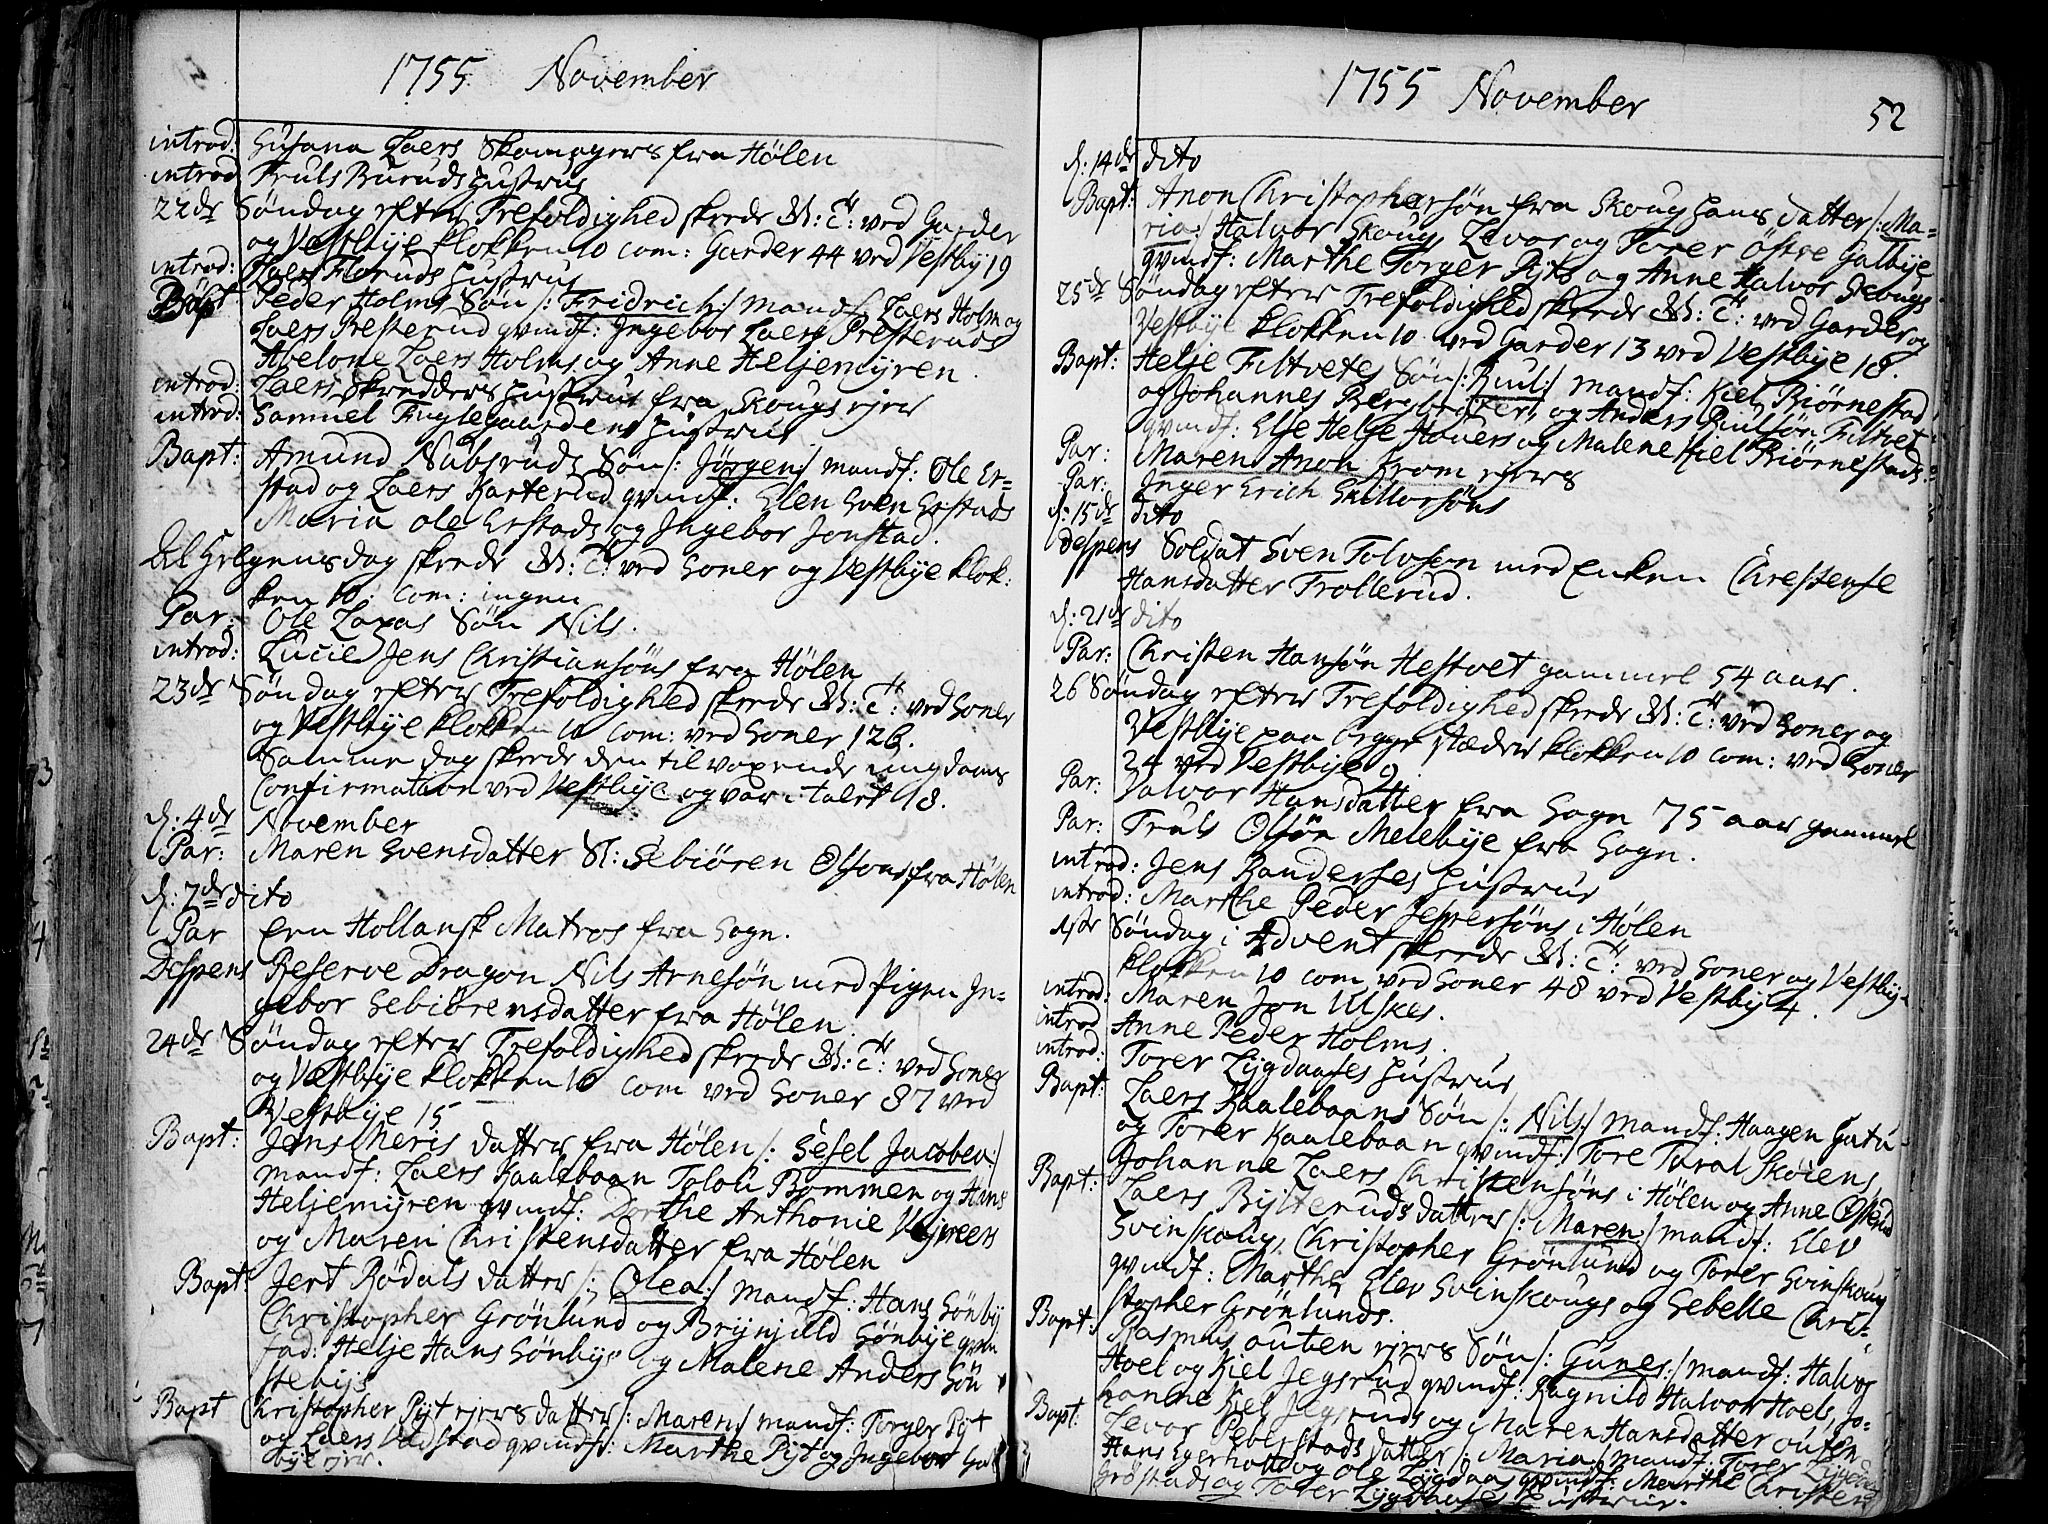 1755 November
introd: Susana Laers Skomagers fra Hølen
introd Truls Buruds Hustrue
22de Søndag efter Trefoldighed skede M: T: ved Garder
og Vestbye klokken 10 com: Garder 44 ved Vestby 19
introd: Hustrue
Bapt Peder Holms Søn /: Fridrich :/ mandf Laers Holm og
Laers Presterud qvindf: Ingebor Laers Presteruds
Abelone Laers Holms og Anne Heljemyren.
introd: Laers Skredders Hustrue fra Skougs ejer
introd: Samuel Fuglegaardens Hustrue
Bapt: Amund Nabsruds Søn /: Jørgen :/ mandf: Ole Er-
stad og Laers Karterud qvindf: Elen Sven Erstads
Maria Ole Erstads og Ingebor Jonstad.
Al Helgensdag skede M: T: ved Soner og Vestbye klok:
ken 10: com: ingen
Par: Ole Laxas Søn Nils.
introd: Lucie Jens Christiansøns fra Hølen
23de Søndag efter Trefoldighed skede M: T: ved Soner
og Vestbye klokken 10 com: ved Soner 126.
Samme dag skede den tilvoxende ungdoms
Confirmation ved Vestbye og var i talet 18.
d: 4de November
Par: Maren Svensdatter Sl: Sebiøren Olsøns fra Hølen
d: 7de dito
Par Een Hollansk Matros fra Sogn.
Despens Reserve Dragon Nils Arnesøn med Pigen In-
gebor Sebiørensdatter fra Hølen.
24de Søndag efter Trefoldighed skede M: T: ved Soner
og Vestbye klokken 10 com ved Soner 87 ved
Vestbye 15
Bapt: Jens Meris datter fra Hølen /: Sesel Jacobea :/
mandf: Laers Kaalebaan Bommen og Hans
Heljemyren qvindf: Dorthe Anthonie
og Maren Christensdatter fra Hølen
Bapt: Jert Rødals datter /: Olea :/ mandf: Hans Sønby
Christopher Grönlund og Brynjuld Sønbye qvin
fad: Helje Hans Sønbys og Malene Anders Søn
stebys
Bapt Christopher Pyt ejers datter /: Maren :/ mandf: Torger Pyt
og Laers Vadstad qvindf: Marthe Pyt og Ingebor
bye ejer.
1755 November 52
d: 14de dito
Bapt: Anon Christophersøn fra Skoug Hans datter /: Ma-
ria :/ Halvor Skoug, Levor og Torer Østre Galbye
qvindf: Marthe Torger Pyts og Anne Halvor Skougs
25de Søndag efter Trefoldighed skede M: T: ved Garder og
Vestbye klokken 10 ved Garder 13 ved Vestbye 18.
Bapt: Helje Filtvetes Søn /: Paul :/ mandf: Kiel Biørnestad
og Johannes og Anders Paulsøn Filtvet
qvindf: Else Helje og Malene Kiel Biørnestads
Par: Maren Anon Krom ejers
Par: Inger Erich Skillorsøns
d: 15de dito
despens Soldat Sven Tolvsen med Enken Christense
Hansdatter Trollerud.
d: 21de dito
Par: Christen Hansøn Hestvet gammel 54 aar.
26 Søndag efter Trefoldighed skede M: T: ved Soner og
Vestbye paa begge stæder klokken 10 com: ved Soner
24 ved Vestbye 9.
Par: Valvor Hansdatter fra Sogn 75 aar gammel
Par: Truls Olsøn Melebye fra Sogn.
introd: Jens Randerses Hustrue
introd: Marthe Peder Jespersøns i Hølen
1ste Søndag i Advent skede M: T: ved Soner og Vestbye
klokken 10 com ved Soner 48 ved Vestby 4.
introd: Maren Jon Ulskes.
introd Anne Peder Holms.
introd: Torer Lygdaases Hustrue
Bapt: Laers Kaalebaans Søn /: Nils :/ mandf: Haagen Gatu
og Torer Kaalebaan qvindf: Tore Taral Skøiens
Johanne Laers Christensøns i Hølen og Anne
Bapt: Laers Bylteruds datter /: Maren :/ mandf: Elev
Svinskoug, Christopher Grönlund og Torer Svinskoug
qvindf: Marthe Elev Svinskougs og Sebelle Chri-
stopher Grönlunds.
Bapt: Rasmus outen ejers Søn /: Gunes :/ mandf: Halvor
Hoel og Kiel Jegsrud qvindf: Ragnild Halvor Hoels, Jo-
hanne Kiel Jegsruds og Maren Hansdatter outen
Bapt: Levor datter /: Maria :/ mandf: Torer Lygdaas
Hans Egerholt og Ole Lygdaas qvindf: Marthe Christen
Grøstads og Torer Lygdaases Hustrue.